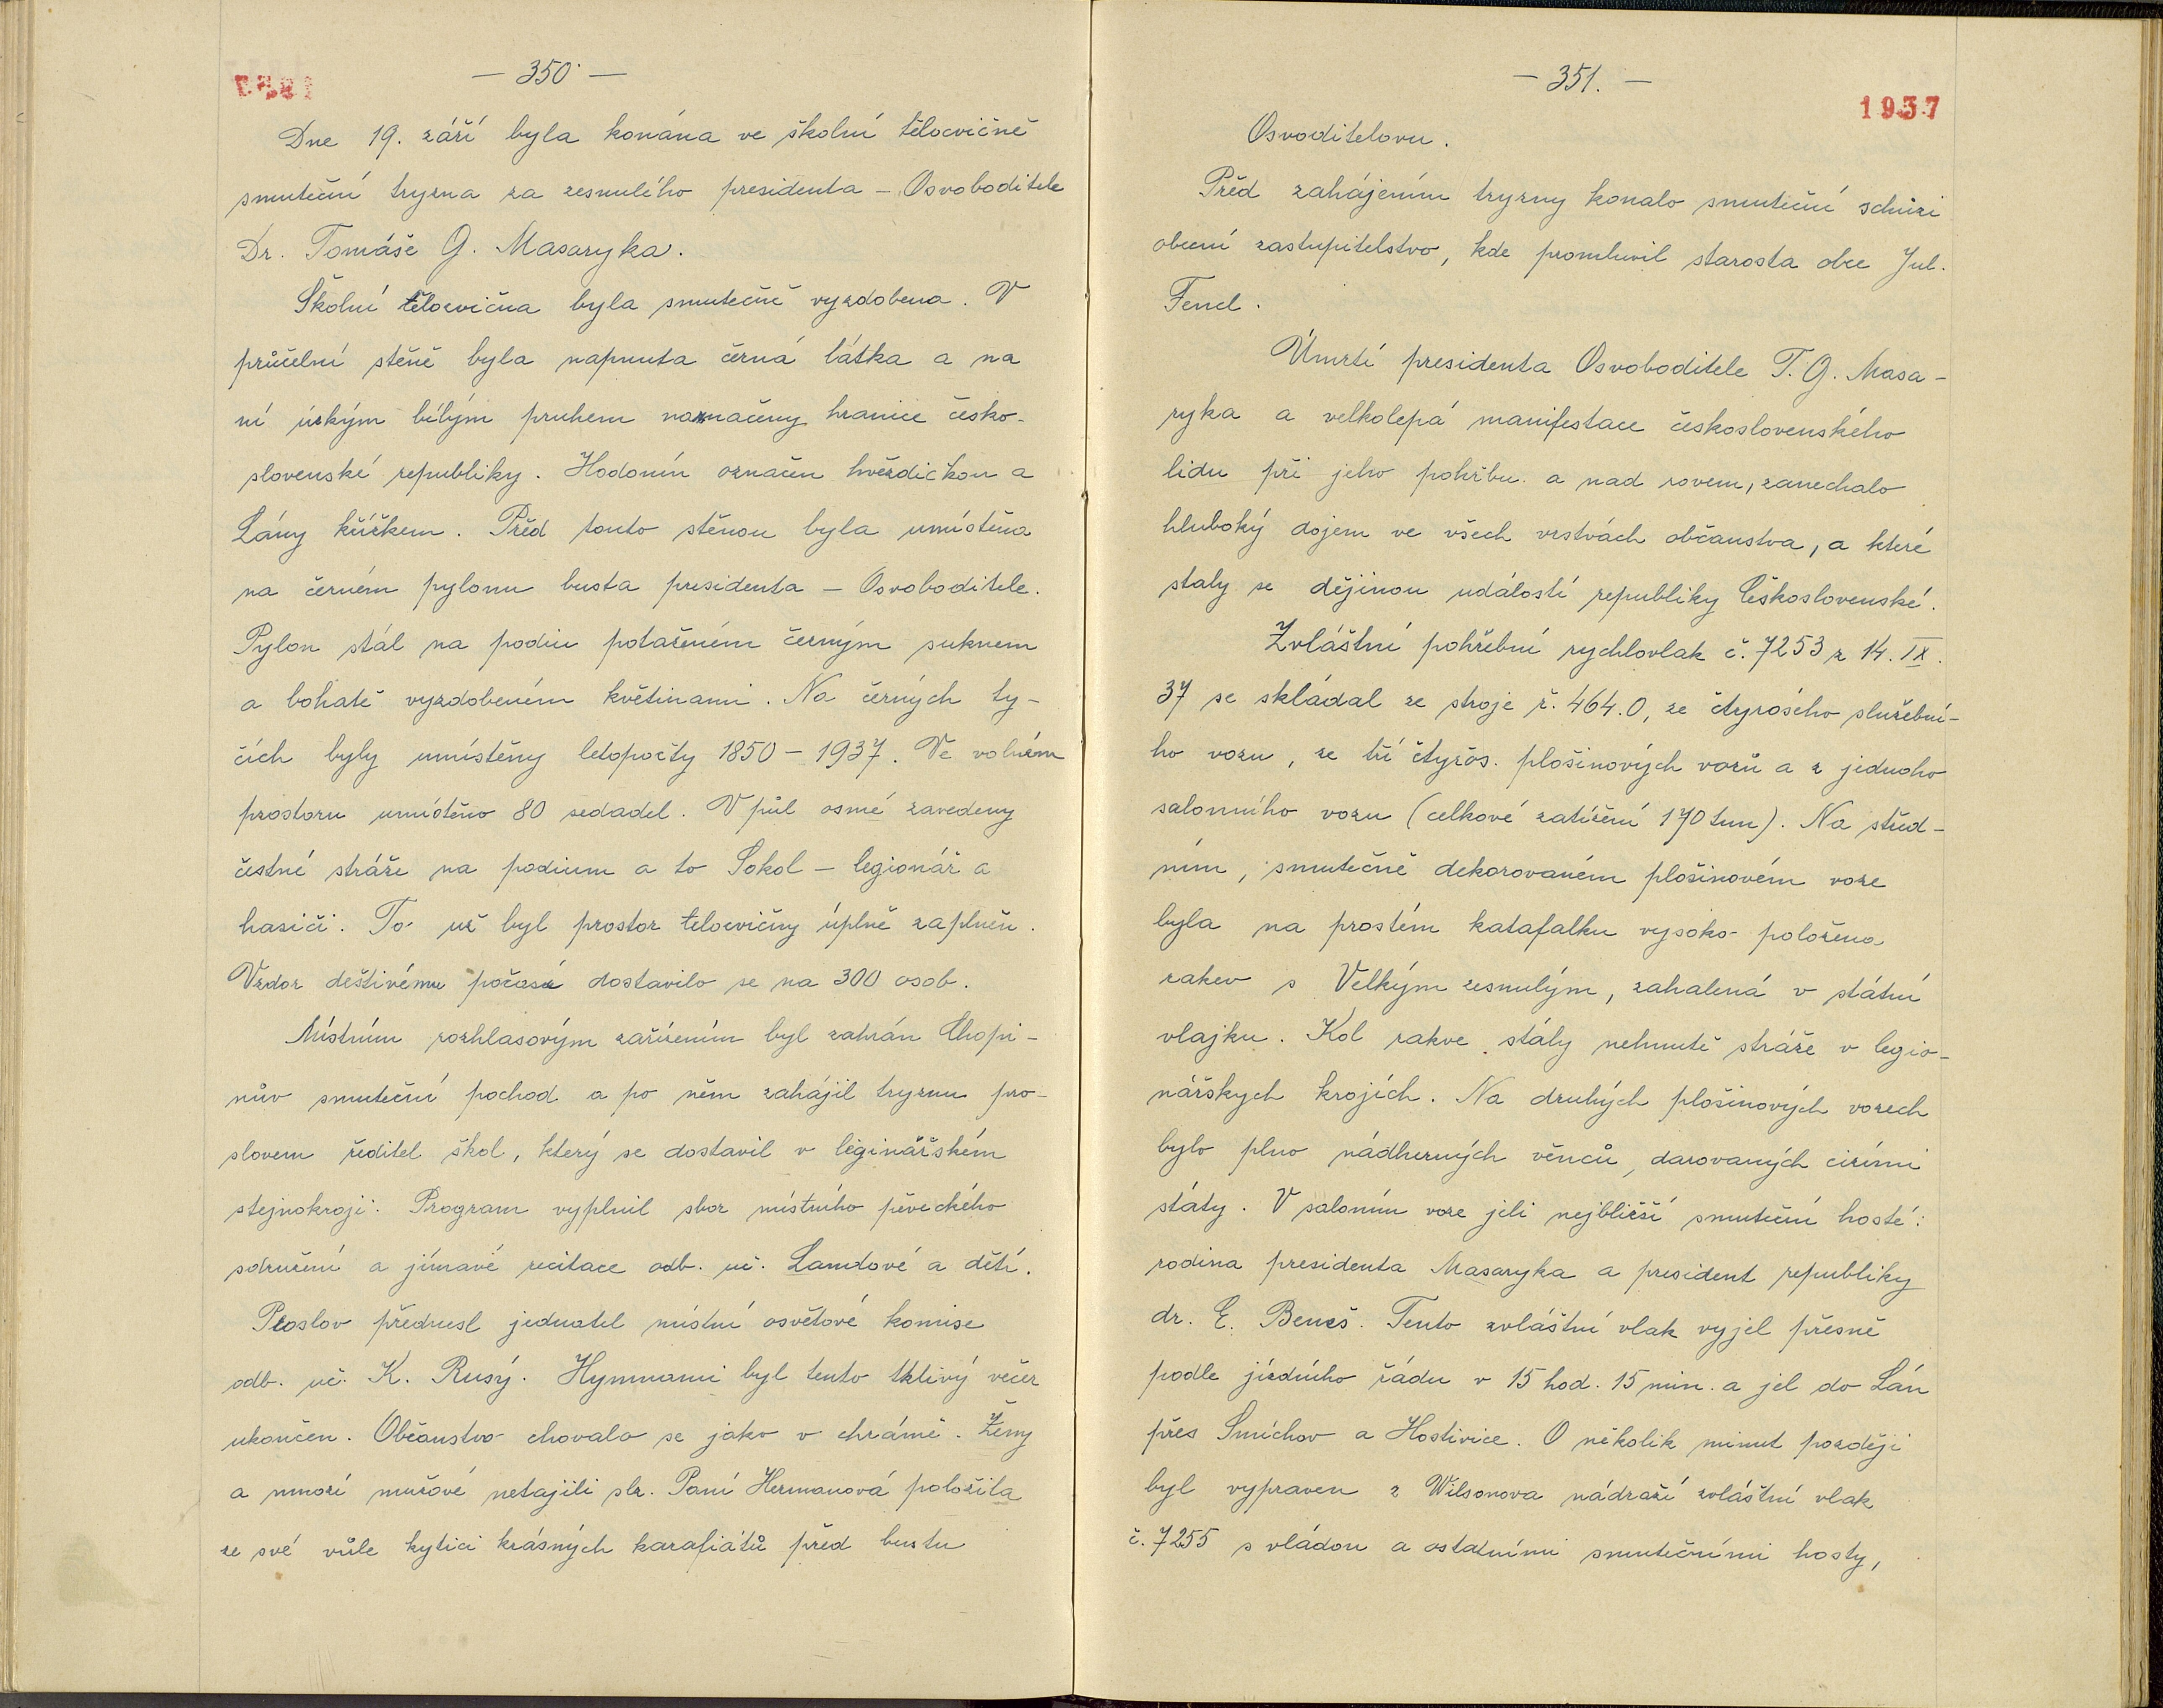 — 350 —
Dne 19. září byla konána ve školní tělocvičně
smuteční tryzna za zesnulého presidenta – Osvoboditele
Dr. Tomáše G. Masaryka.
Školní tělocvična byla smutečně vyzdobena. V
průčelní stěně byla napnuta černá látka a na
ní úzkým bílým pruhem naznačeny hranice česko-
slovenské republiky. Hodonín označen hvězdičkou a
Lány křížkem. Před touto stěnou byla umístěna
na černém pylonu busta presidenta – Osvoboditele.
Pylon stál na podiu potaženém černým suknem
a bohatě vyzdobeném květinami. Na černých ty-
čích byly umístěny letopočty 1850 – 1937. Ve volném
prostoru umístěno 80 sedadel. V půl osmé zavedeny
čestné stráže na podium a to Sokol – legionář a
hasiči. To už byl prostor tělocvičny úplně zaplněn.
Vzdor deštivému počasí dostavilo se na 300 osob.
Místním rozhlasovým zařízením byl zahrán Chopi-
nův smuteční pochod a po něm zahájil tryznu pro-
slovem ředitel škol, který se dostavil v leginářském
stejnokroji. Program vyplnil sbor místního pěveckého
sdružení a jímavé recitace odb. uč. Landové a dětí.
Proslov přednesl jednatel místní osvětové komise
odb. uč. K. Rusý. Hymnami byl tento tklivý večer
ukončen. Občanstvo chovalo se jako v chrámě. Ženy
a mnozí mužové netajili slz. Paní Hermanová položila
ze své vůle kytici krásných karafiátů před bustu
— 351. —
1937
Osvoditelovu.
Před zahájením tryzny konalo smuteční schůzi
obecní zastupitelstvo, kde promluvil starosta obce Jul.
Fencl.
Úmrtí presidenta Osvoboditele T. G. Masa-
ryka a velkolepá manifestace československého
lidu při jeho pohřbu a nad rovem, zanechalo
hluboký dojem ve všech vrstvách občanstva, a které
staly se dějinou událostí republiky Československé.
Zvláštní pohřební rychlovlak č. 7253 z 14. IX.
37 se skládal ze stroje ř. 464.0, ze čtyrosého služební-
ho vozu, ze tří čtyřos. plošinových vozů a z jednoho
salonního vozu (celkové zatížení 170 tun). Na střed-
ním, smutečně dekorovaném plošinovém voze
byla na prostém katafalku vysoko položena
rakev s Velkým zesnulým, zahalená v státní
vlajku. Kol rakve stály nehnutě stráže v legio-
nářskych krojích. Na druhých plošinových vozech
bylo plno nádherných věnců, darovaných cizími
státy. V saloním voze jeli nejbližší smuteční hosté:
rodina presidenta Masaryka a president republiky
dr. E. Beneš. Tento zvláštní vlak vyjel přesně
podle jízdního řádu v 15 hod. 15 min. a jel do Lán
přes Smíchov a Hostivice. O několik minut později
byl vypraven z Wilsonova nádraží zvláštní vlak
č. 7255 s vládou a ostatními smutečními hosty,